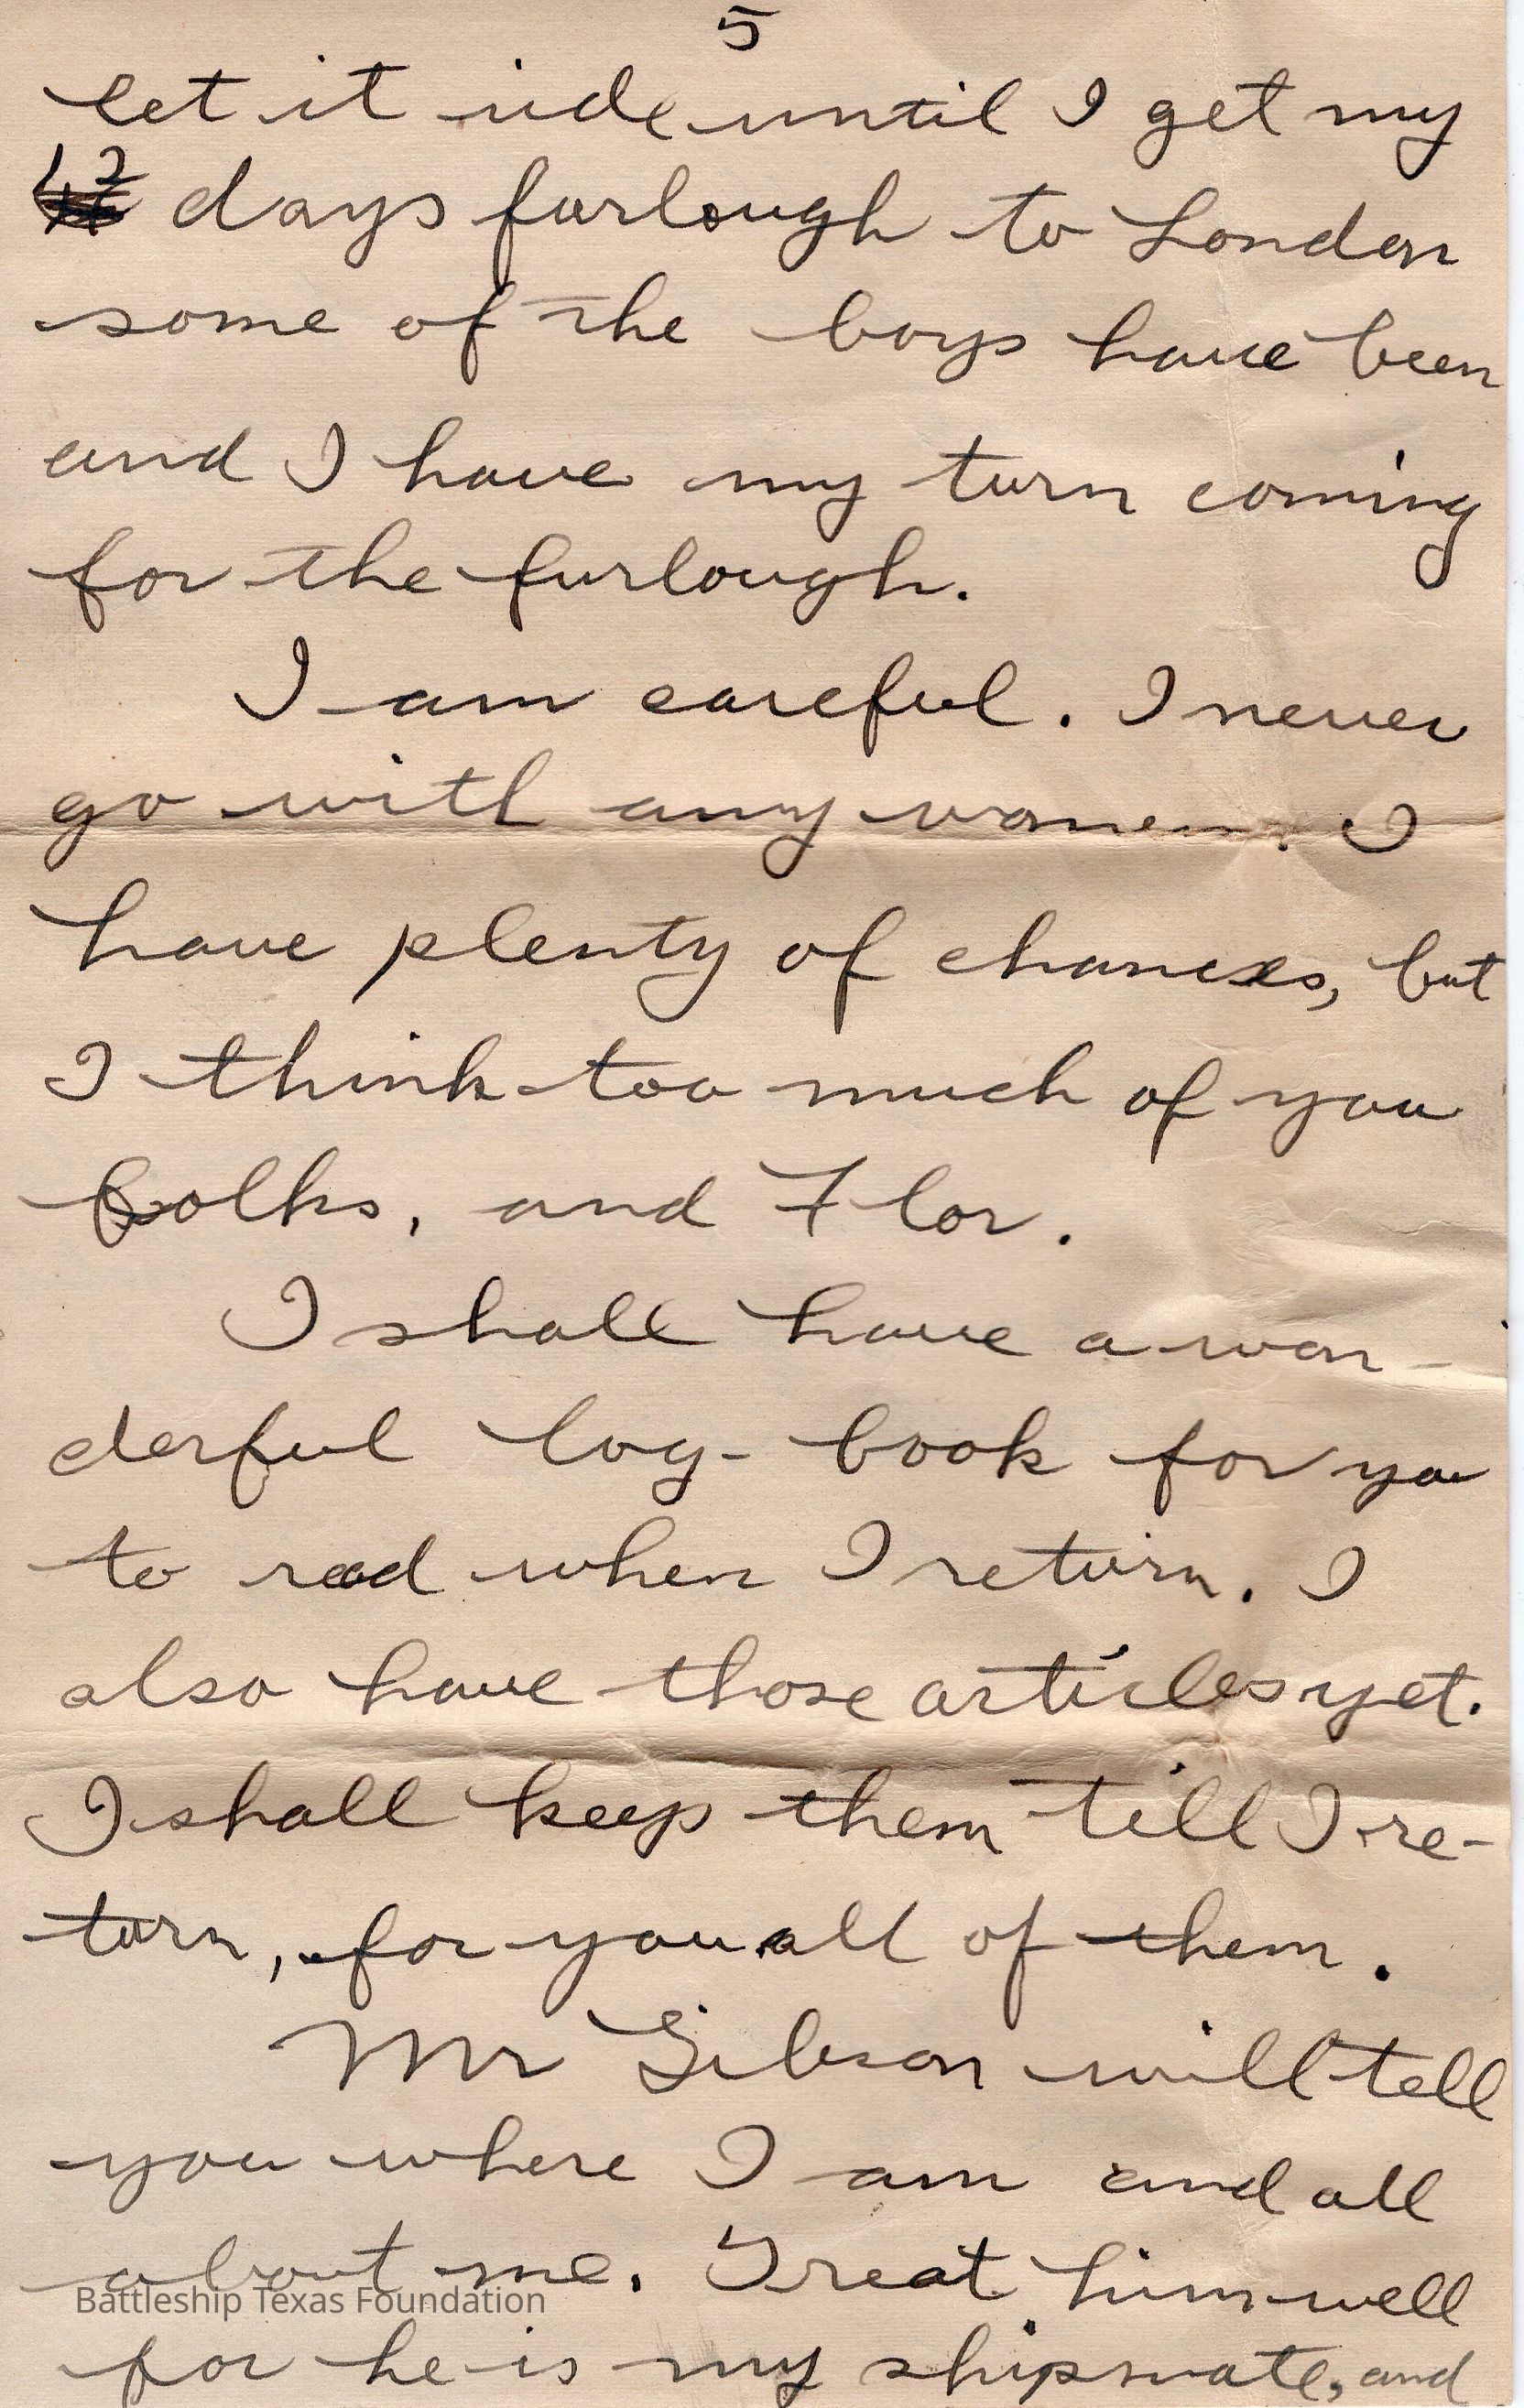 5
let it ride until I get my
12 days furlough to London
some of the boys have been
and I have my turn coming
for the furlough.
I am careful. I never
go with any women. I
have plenty of chances, but
I think too much of you
folks, and Flor.
I shall have a won-
derful log-book for you
to read when I return. I
also have those articles yet.
I shall keep them till I re-
turn, for you all of them.
Mr Gibson will tell
you where I am and all
about me. Treat him well
for he is my shipmate, and
Battleship Texas Foundation